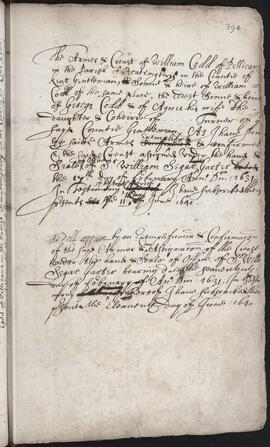 394
The Armes & Creast of William Codd of Pellicane
in the Parish of Watringbury in the Countie of
Kent Gentleman Sonne & heire of William
Codd of the same place, the eldest Sonne & heire
of George Codd & of Agnes his wife the
daughter & Coheire of Turner of
Countie Gentleman. As I have seen
by Armes exemplified & confirmed
& the Creast assigned under the hand &
Seale of Sr William Segar Garter
the 17th day of February Anno Dni 1631
In I have subscribed these
presents the 11th June 1640
As doth appeare by an Exemplification & Confirmation
of the said Armes & Assignation of the Creast
under the hand & Seale of Office of Sr Will
Segar Garter bearing date the seaventeenth
day of February Ano Dni 1631. In Testi-
mony whereof I have subscribed these
presents the Eleaventh day of June 1640